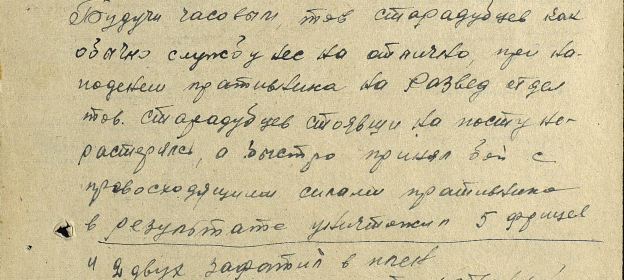 Будучи часовым, тов Старадубцев как
обычно службу нес на отлично, при на-
подении пративника на развед отдел
тов. Старадубцев стоявши на посту не-
растерялся, а быстро принял бой с
превосходящими силами пративника
в результате уничтожил 5 фрицев
и 2 двух захватил в плен